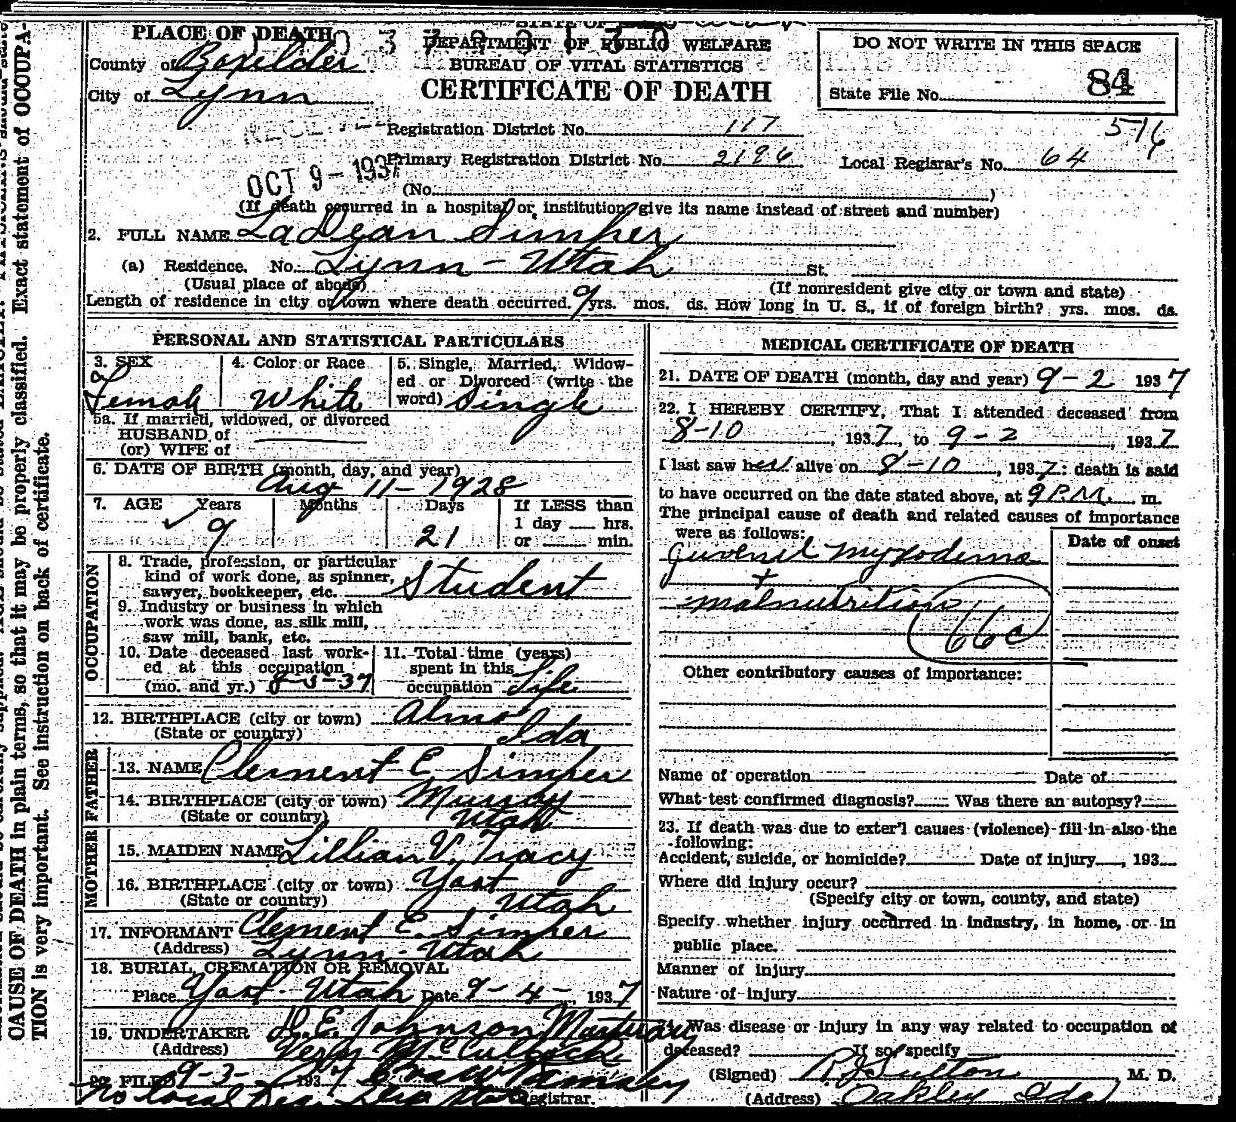 STATE OF
PLACE OF DEATH
DEPARTMENT OF PUBLIC WELFARE
BUREAU OF VITAL STATISTICS
CERTIFICATE OF DEATH
County of Boxelder
City of Lynn
DO NOT WRITE IN THIS SPACE
State File No. 84
Registration District No. 117
Primary Registration District No. 2196
Local Regisrar's No. 64
OCT 9 - 1937
(No. )
(If death occurred in a hospital or institution give its name instead of street and number)
2. FULL NAME LaDean Simper
(a) Residence. No. Lynn - Utah St.
(Usual place of abode) (If nonresident give city or town and state)
Length of residence in city or town where death occurred. 9 yrs. mos. ds. How long in U. S., if of foreign birth? yrs. mos. ds.
PERSONAL AND STATISTICAL PARTICULARS
3. SEX Female
4. Color or Race White
5. Single, Married, Widow-
ed or Divorced (write the
word) Single
5a. If married, widowed, or divorced
HUSBAND of
(or) WIFE of
6. DATE OF BIRTH (month, day, and year)
Aug 11 - 1928
7. AGE Years Months Days If LESS than
9 21 1 day hrs.
or min.
OCCUPATION
8. Trade, profession, or particular
kind of work done, as spinner,
sawyer, bookkeeper, etc. Student
9. Industry or business in which
work was done, as silk mill,
saw mill, bank, etc.
10. Date deceased last work-
ed at this occupation
(mo. and yr.) 8-3-37
11. Total time (years)
spent in this
occupation Life
12. BIRTHPLACE (city or town) Almo
(State or country) Ida
FATHER
13. NAME Clement E. Simper
14. BIRTHPLACE (city or town) Murray
(State or country) Utah
MOTHER
15. MAIDEN NAME Lillian V. Tracy
16. BIRTHPLACE (city or town) Yost
(State or country) Utah
17. INFORMANT Clement E. Simper
(Address) Lynn - Utah
18. BURIAL, CREMATION OR REMOVAL
Place Yost Utah Date 9-4-, 1937
19. UNDERTAKER Johnson Mortuary
(Address) McCulloch
20. FILED 9-3-, 1937
Registrar.
MEDICAL CERTIFICATE OF DEATH
21. DATE OF DEATH (month, day and year) 9-2 1937
22. I HEREBY CERTIFY, That I attended deceased from
8-10, 1937, to 9-2, 1937
I last saw her alive on 8-10, 1937: death is said
to have occurred on the date stated above, at 9 P.M. m.
The principal cause of death and related causes of importance
were as follows: Date of onset
Juvenil Myxodema
+
malnutrition
66c
Other contributory causes of importance:
Name of operation Date of
What test confirmed diagnosis? Was there an autopsy?
23. If death was due to exter'l causes (violence) fill in also the
following:
Accident, suicide, or homicide? Date of injury, 193
Where did injury occur?
(Specify city or town, county, and state)
Specify whether injury occurred in industry, in home, or in
public place.
Manner of injury
Nature of injury
Was disease or injury in any way related to occupation of
deceased? If so specify
(Signed) R J Sutton M. D.
(Address) Oakley Ida
CAUSE OF DEATH in plain terms, so that it may be properly classified. Exact statement of OCCUPA-
TION is very important. See instruction on back of certificate.